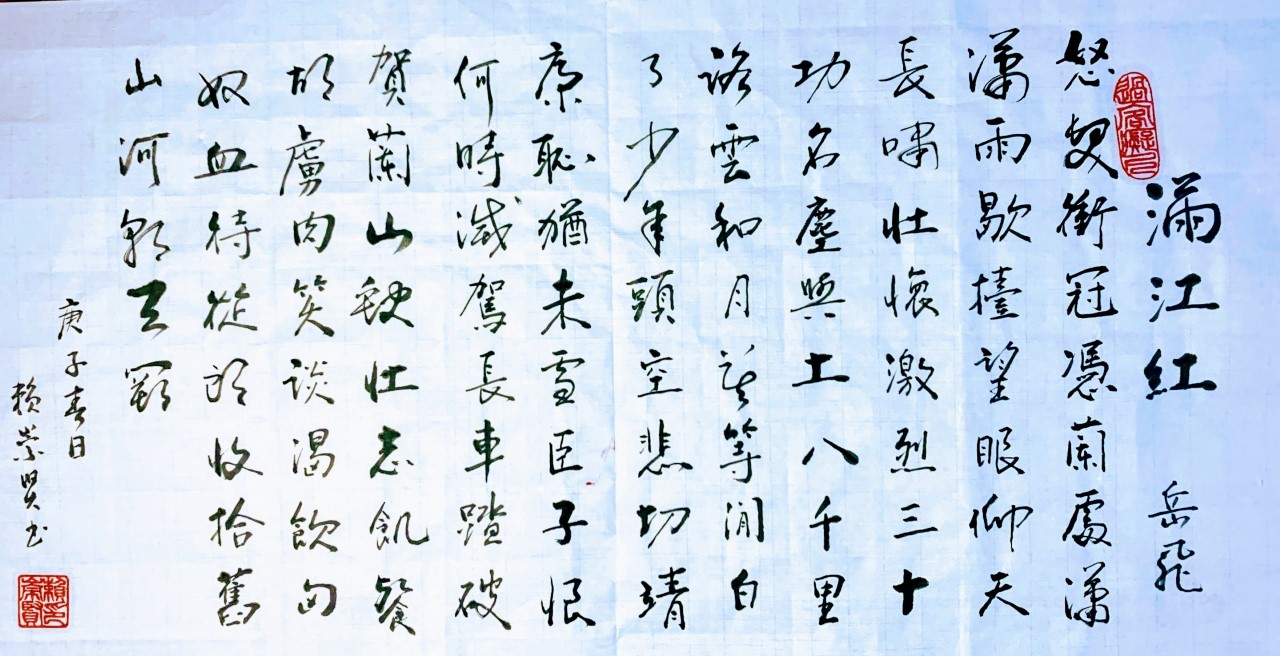 滿江紅 岳飛
怒髮衝冠憑蘭處瀟
瀟雨歇擡望眼仰天
長嘯壯懷激烈三十
功名塵與土八千里
路雲和月莫等閒白
了少年頭空悲切靖
康恥猶未雪臣子恨
何時滅駕長車踏破
賀蘭山缺壯志飢餐
胡虜肉笑談渴飲匈
奴血待從頭收拾舊
山河朝天闕
庚子春日
賴崇賢书
賴氏崇賢